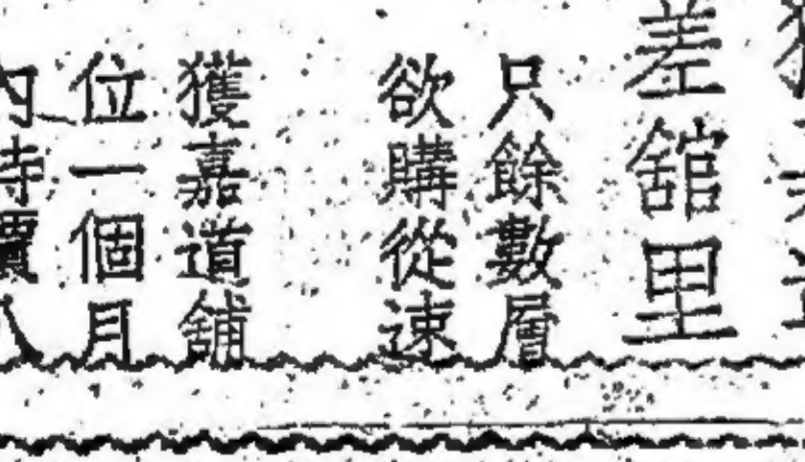 差舘里
只餘數層
欲購從速
獲嘉道舖
位一個月
內特價八